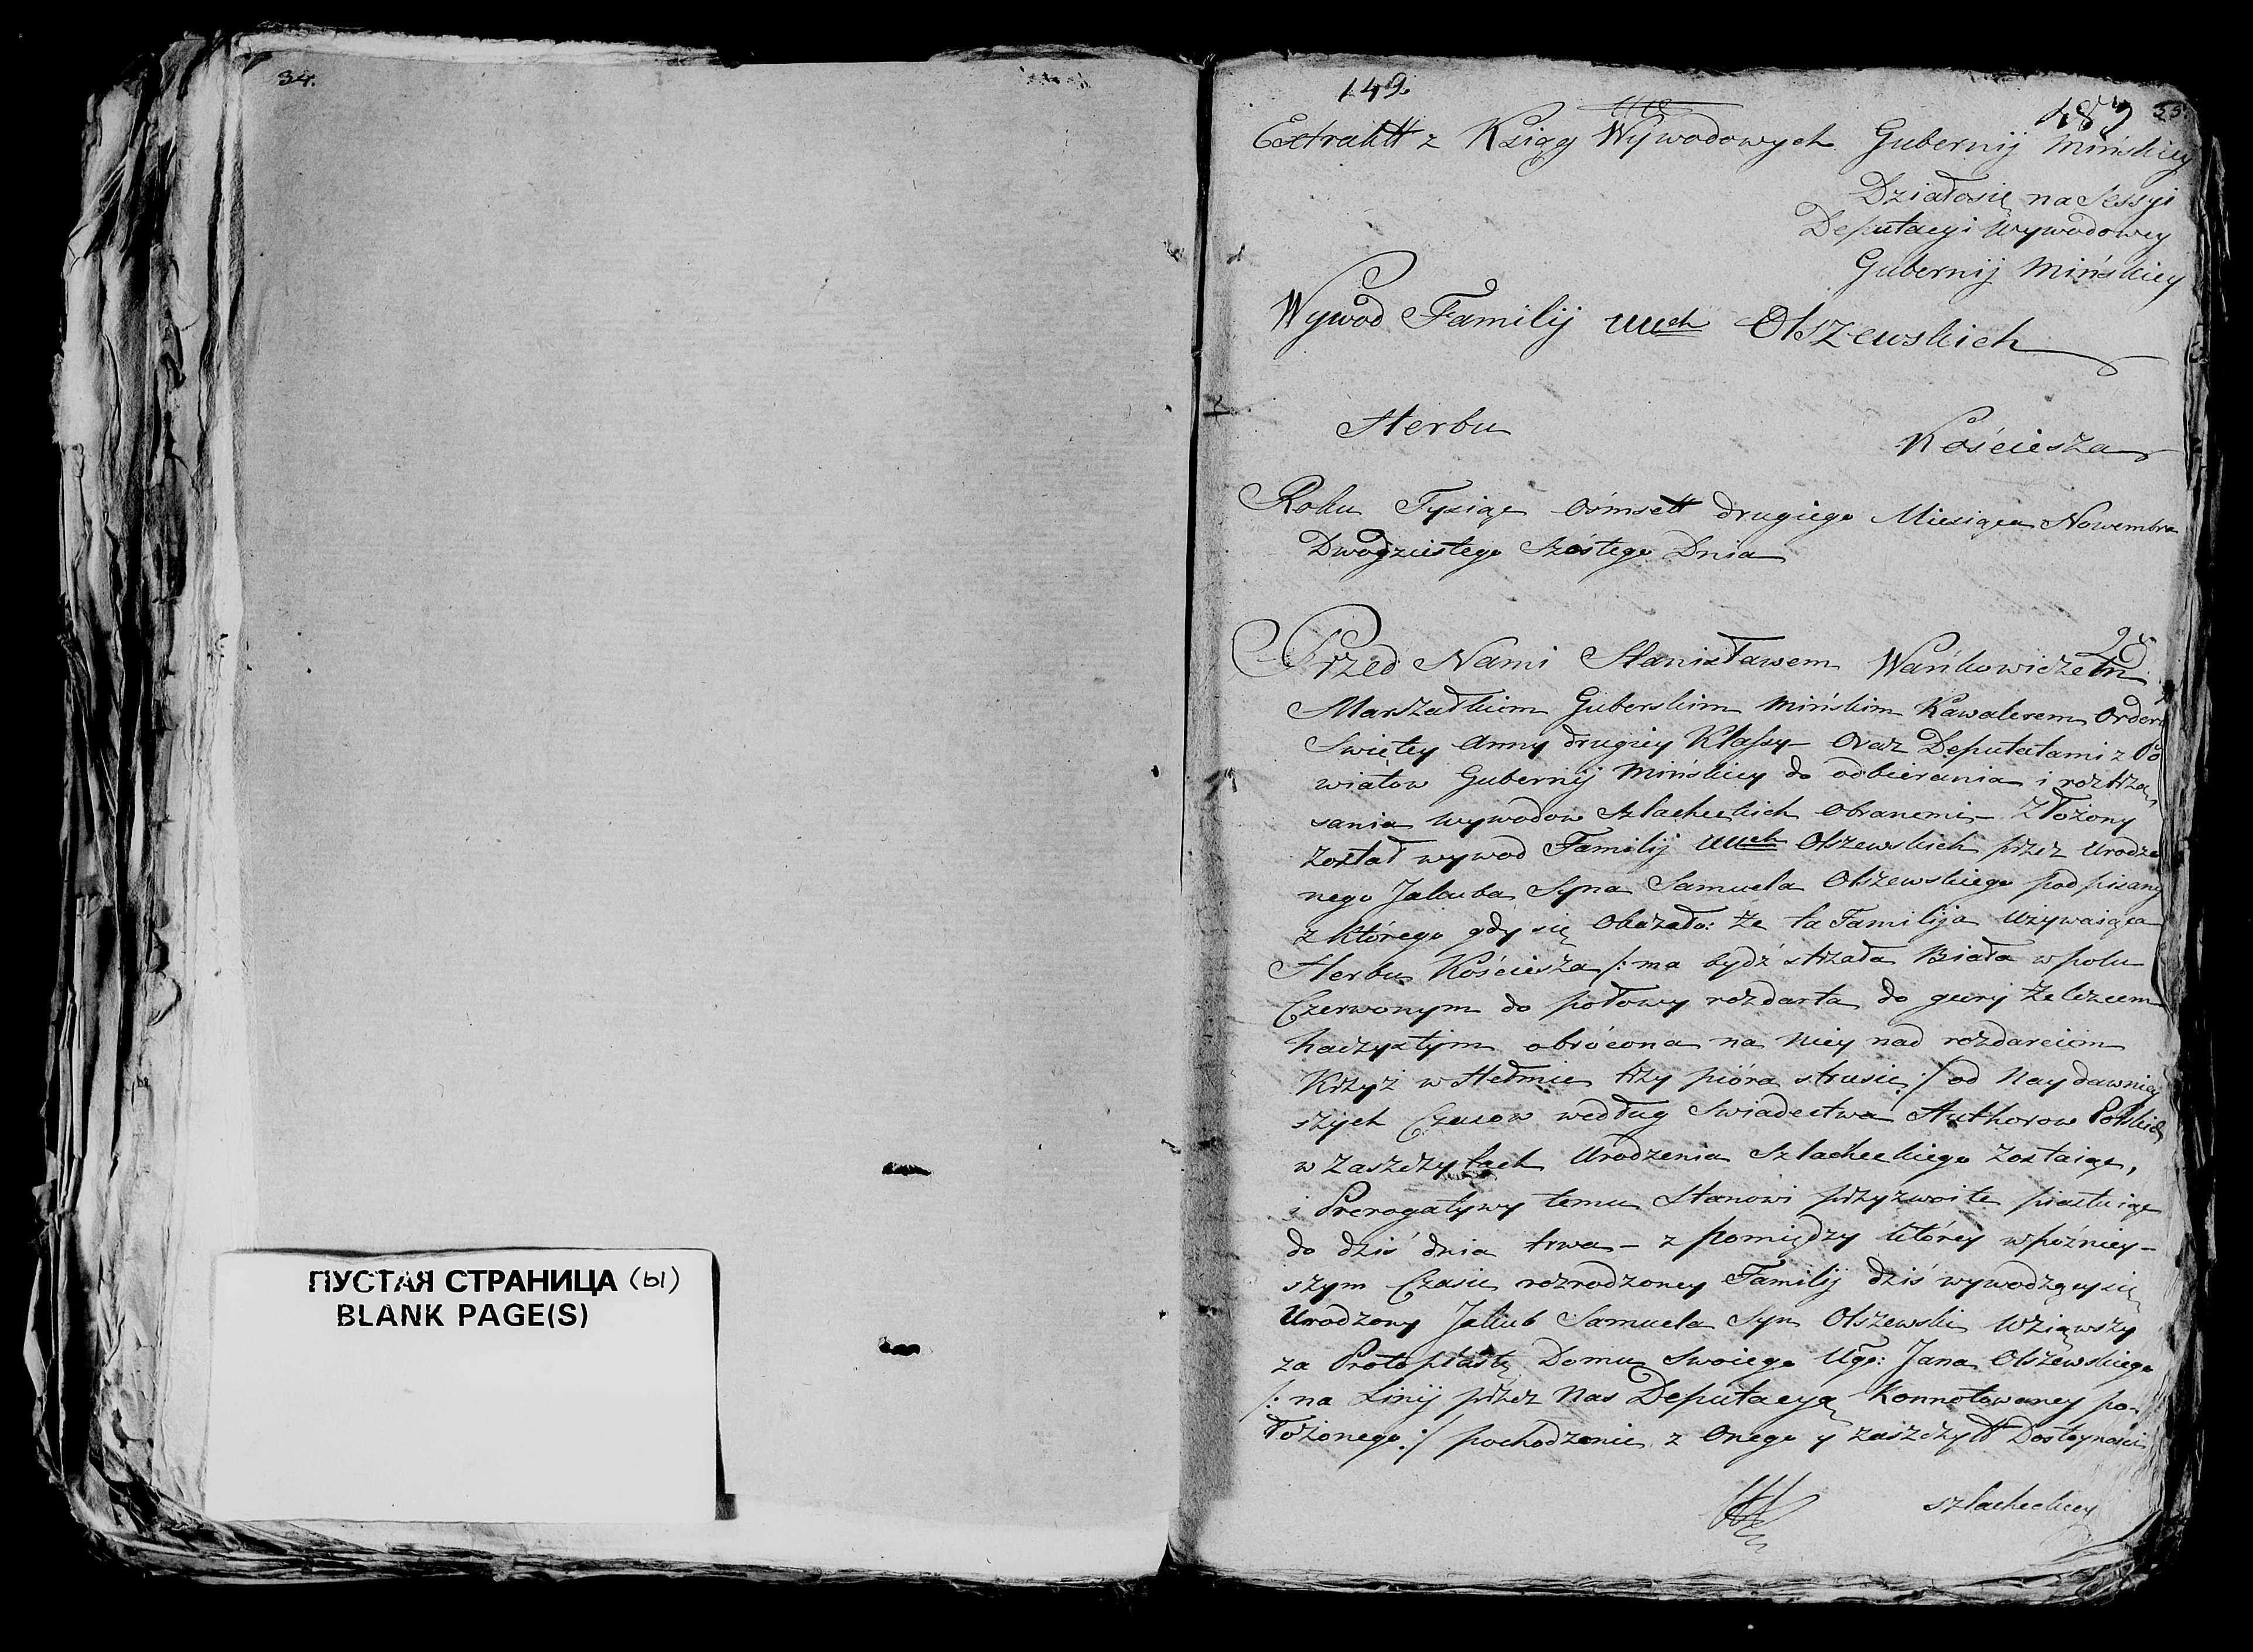 34.
ПУСТАЯ СТРАНИЦА (ы)
BLANK PAGE(S)
149.
187 35.
Extraktt z Ksiąg Wywodowych Gubernij Mińskiey
Działosię na Sessyi
Deputacyi Wywodowey
Gubernij Mińskiey
Wywod Familij UUch Olszewskich
Herbu Kościesza
Roku Tysiąc Ośmsett drugiego Miesiąca Nowembra
Dwódziestego Szóstego Dnia
Przed Nami Stanisławem Wańkowiczem
Marszałkiem Guberskim Mińskim Kawalerem Orderu
Swiętey Anny drugiey Klassy – Oraz Deputatami z Po
wiatow Gubernij Mińskiey do odbierania i roztrzą
sania wywodow Szlacheckich obranemi – Złożony
został wywod Familij UUch Olszewskich przez Urodzo
nego Jakuba Syna Samuela Olszewskiego podpisany
z którego gdy się Okazało: że ta Familija używaiąca
Herbu Kościesza /: ma bydź strzała Biała w polu
Czerwonym do połowy rozdarta do gury żelezcem
kaczystym obrócona na niey nad rozdarciem
Krzyż w Hełmie trzy pióra strusie :/ od naydawniey
szych Czasow według Swiadectwa Authorow Polskich
w zaszczytach Urodzenia Szlacheckiego zostaiąc,
i Prerogatywy temu Stanowi przyzwoite piastuiąc
do dziś dnia trwa – z pomiędzy którey w późniey–
szym Czasie rozrodzoney Familij dziś wywodzący się
Urodzony Jakub Samuela Syn Olszewski wziąwszy
za Protoplastę Domu Swoiego Ugo: Jana Olszewskiego
/: na Linij przez Nas Deputacyą Konnotowaney po–
łożonego :/ pochodzenie z Onego y zaszczytt Dostoyności
szlacheckiey